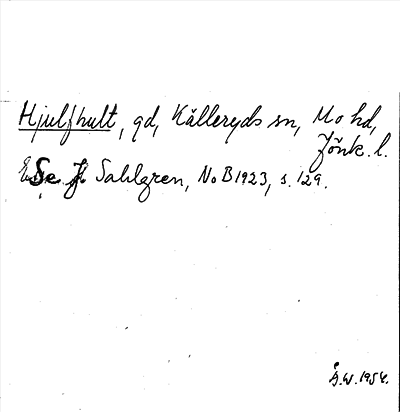 Hjulfhult, gd, Kålleryds sn, Mo hd,
Jönk. l.
Se J. Sahlgren, NoB 1923, s. 129.
Å.W. 1954.